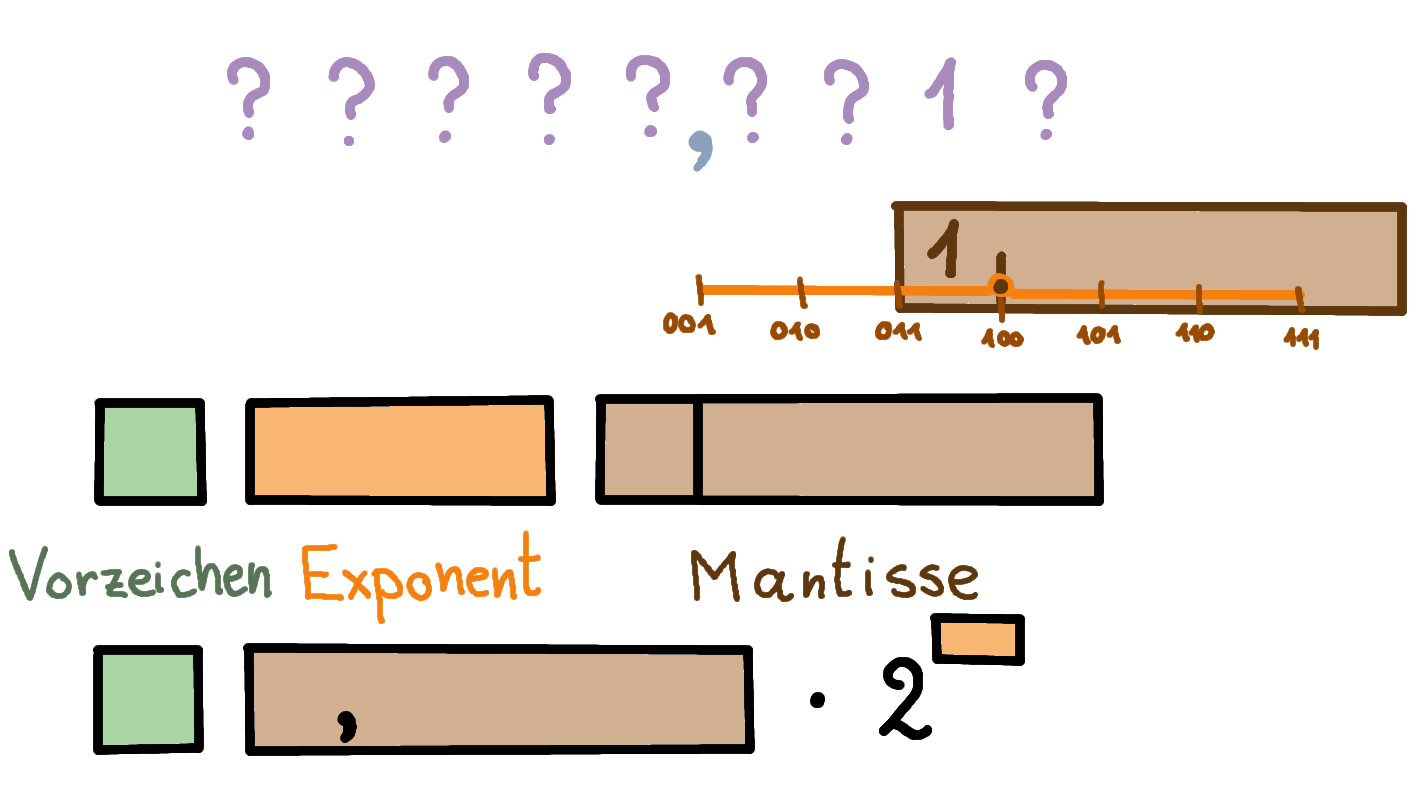 ? ? ? ? ? , ? ? 1 ?
1
001 010 011 100 101 110 111
Vorzeichen Exponent Mantisse
, · 2